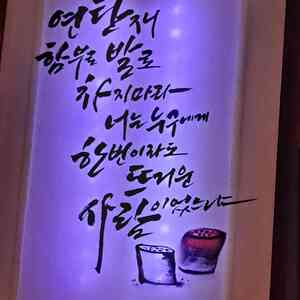 연탄재
함부로 발로
차지마라
너는 누구에게
한번이라도
뜨거운
사람이었느냐